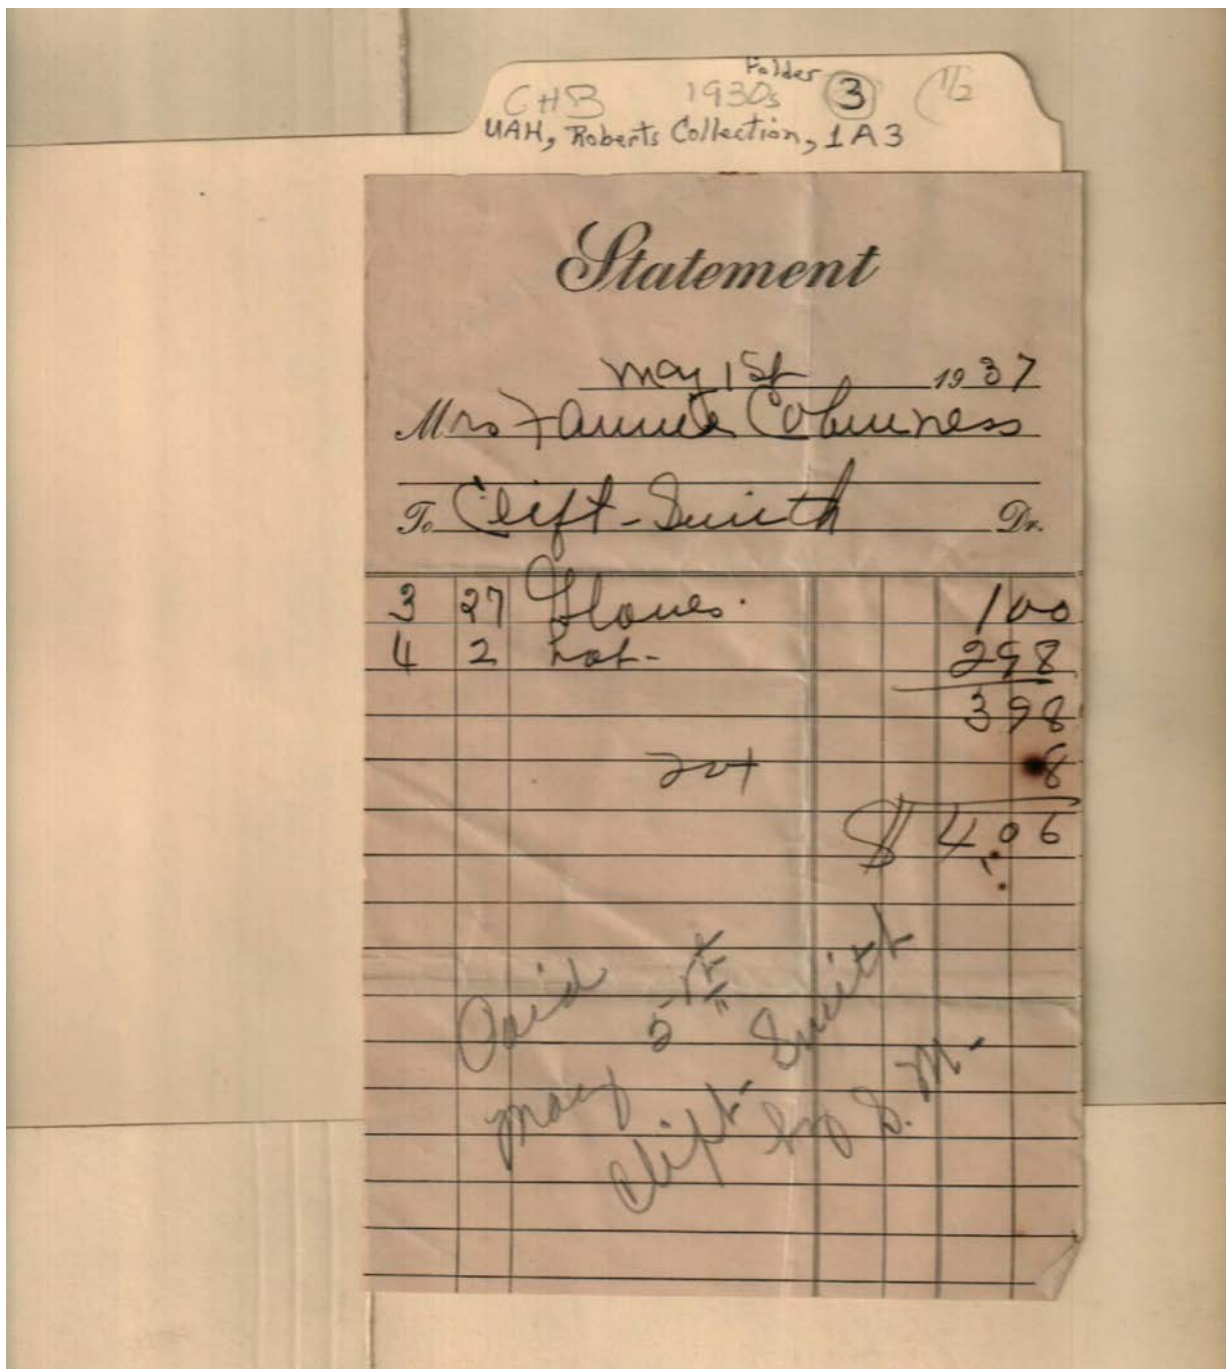 Folder
CHB 1930s 3 1/2
UAH, Roberts Collection, 1A3
Statement
May 1st 1937
Mrs Fannie
To Clift-Smith Dr.
3 27 Gloves. 100
4 2 hat- 298
398
8
$ 4.06
Paid
May 5th
Clift-Smith
by S. M.